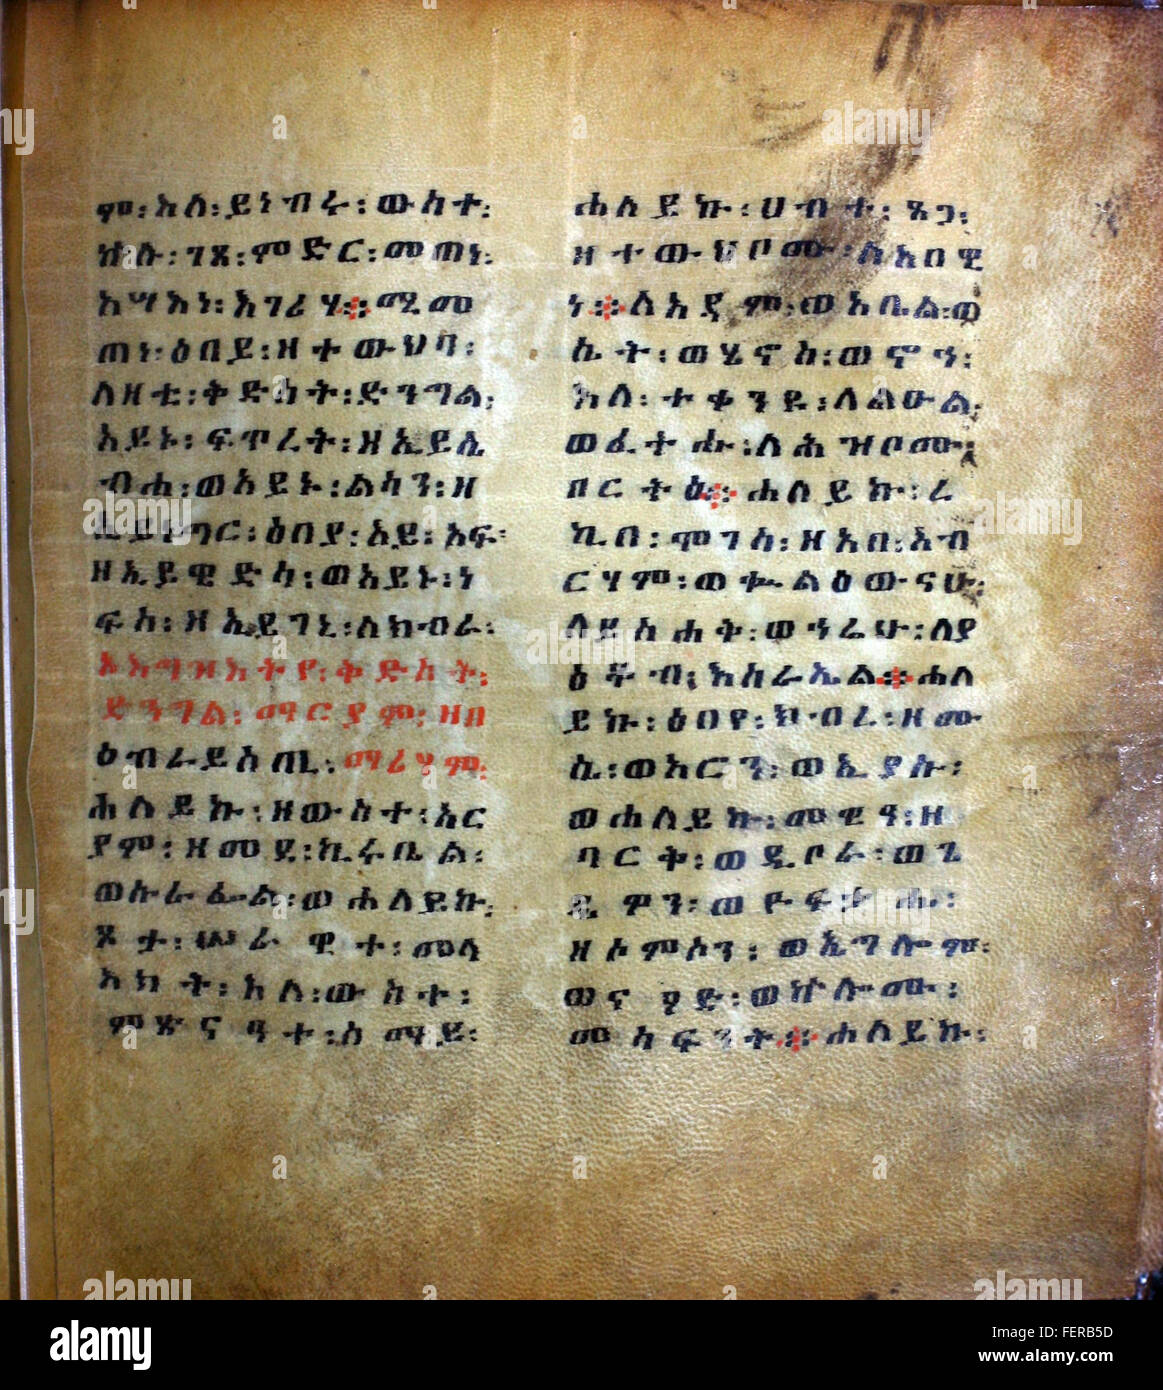 ም፡እለ፡ይነብሩ፡ውስተ፡
ኵሉ፡ገጸ፡ምድር፡መጠነ፡
አሣእነ፡እገሪሃ፨ሚመ
ጠነ፡ዕበይ፡ዘተውህባ፡
ለዛቲ፡ቅድስት፡ድንግል፡
አይኑ፡ፍጥረት፡ዘኢይሴ
ብሐ፡ወአይኑ፡ልሳን፡ዘ
ኢይነግር፡ዕበያ፡አይ፡አፍ፡
ዘኢይዌድሳ፡ወአይኑ፡ነ
ፍስ፡ዘኢይገኒ፡ለክብራ፡
ኦእግዝእትየ፡ቅድስት፡
ድንግል፡ማርያም፡ዘበ
ዕብራይስጢ፡ማሪሃም፡
ሐለይኩ፡ዘውስተ፡አር
ያም፡ዘመደ፡ኪሩቤል፡
ወሱራፌል፡ወሐለይኩ፡
ጾታ፡ሠራዊተ፡መላ
እክት፡እለ፡ውስተ፡
ምጽናዓተ፡ሰማይ፡
ሐለይኩ፡ሀብተ፡ጸጋ፡
ዘተውህቦሙ፡ለአበዊ
ነ፨ለአዳም፡ወአቤል፡ወ
ሴት፡ወሄኖስ፡ወኖኅ፡
እለ፡ተቀንዩ፡ለልዑል፡
ወፈተሑ፡ለሕዝቦሙ፡
በርትዕ፨ሐለይኩ፡ረ
ኪበ፡ሞገሰ፡ዘአበ፡አብ
ርሃም፡ወቍልዕውናሁ፡
ለይስሐቅ፡ወኅሬሁ፡ለያ
ዕቆብ፡እስራኤል፨ሐለ
ይኩ፡ዕበየ፡ክብረ፡ዘሙ
ሴ፡ወአሮን፡ወኢያሱ፡
ወሐለይኩ፡መዊዓ፡ዘ
ባርቅ፡ወዲቦራ፡ወጌ
ዴዎን፡ወዮፍታሔ፡
ዘሶምሶን፡ወኢግሎም፡
ወናዖድ፡ወኵሎሙ፡
መሳፍንት፨ሐለይኩ፡